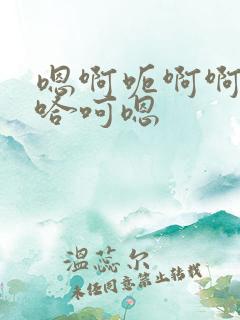 嗯啊呃啊啊
哈呵嗯
温蕊尔
未经同意禁止转载